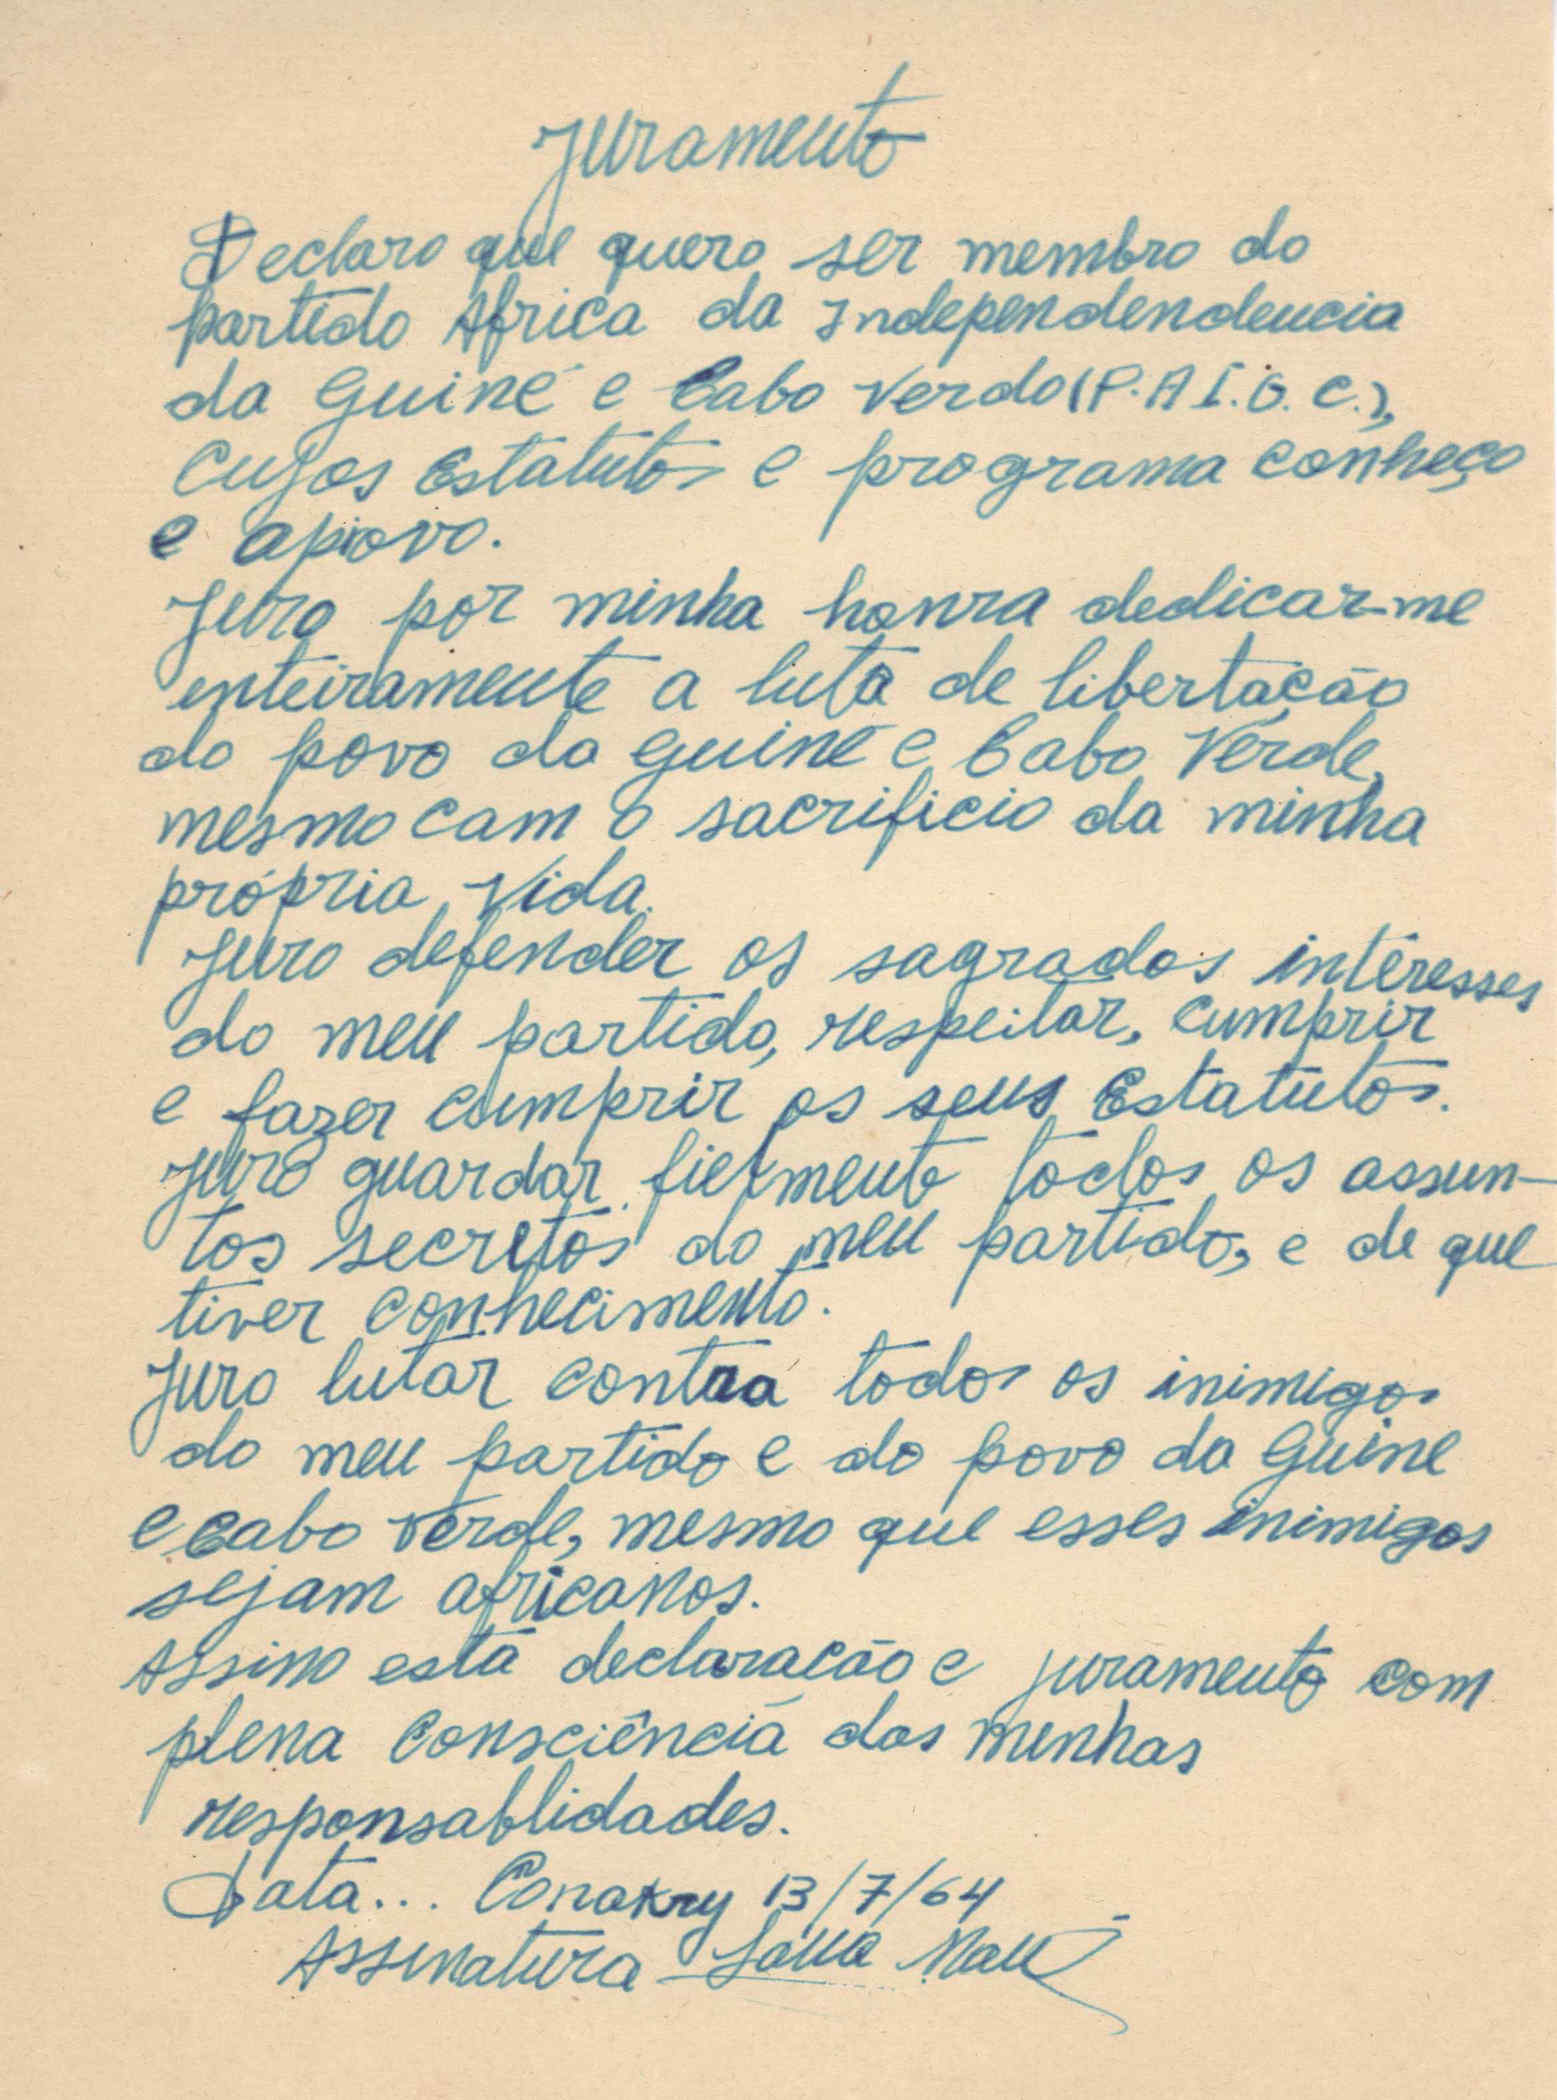 Juramento
Declaro que quero ser membro do
partido Africa da Independendencia
da Guiné e Cabo Verdo (P.A I. G. C.),
Cujos Estatutos e programa conheço
e aprovo.
Juro por minha honra dedicar-me
enteiramente a luta de libertação
do povo da Guiné e Cabo Verde,
mesmo cam o sacrificio da minha
própria vida.
Juro defender os sagrados interesses
do meu partido, respeitar, cumprir
e fazer cumprir os seus Estatutos.
Juro guardar fielmente todos os assun-
tos secretos do meu partido, e de que
tiver conhecimento.
Juro lutar contra todos os inimigos
do meu partido e do povo da Guine
e Cabo Verde, mesmo que esses inimigos
sejam africanos.
Assino esta declaração e juramento com
plena consciência das minhas
responsablidades.
Data... Conakry 13/7/64
Assinatura